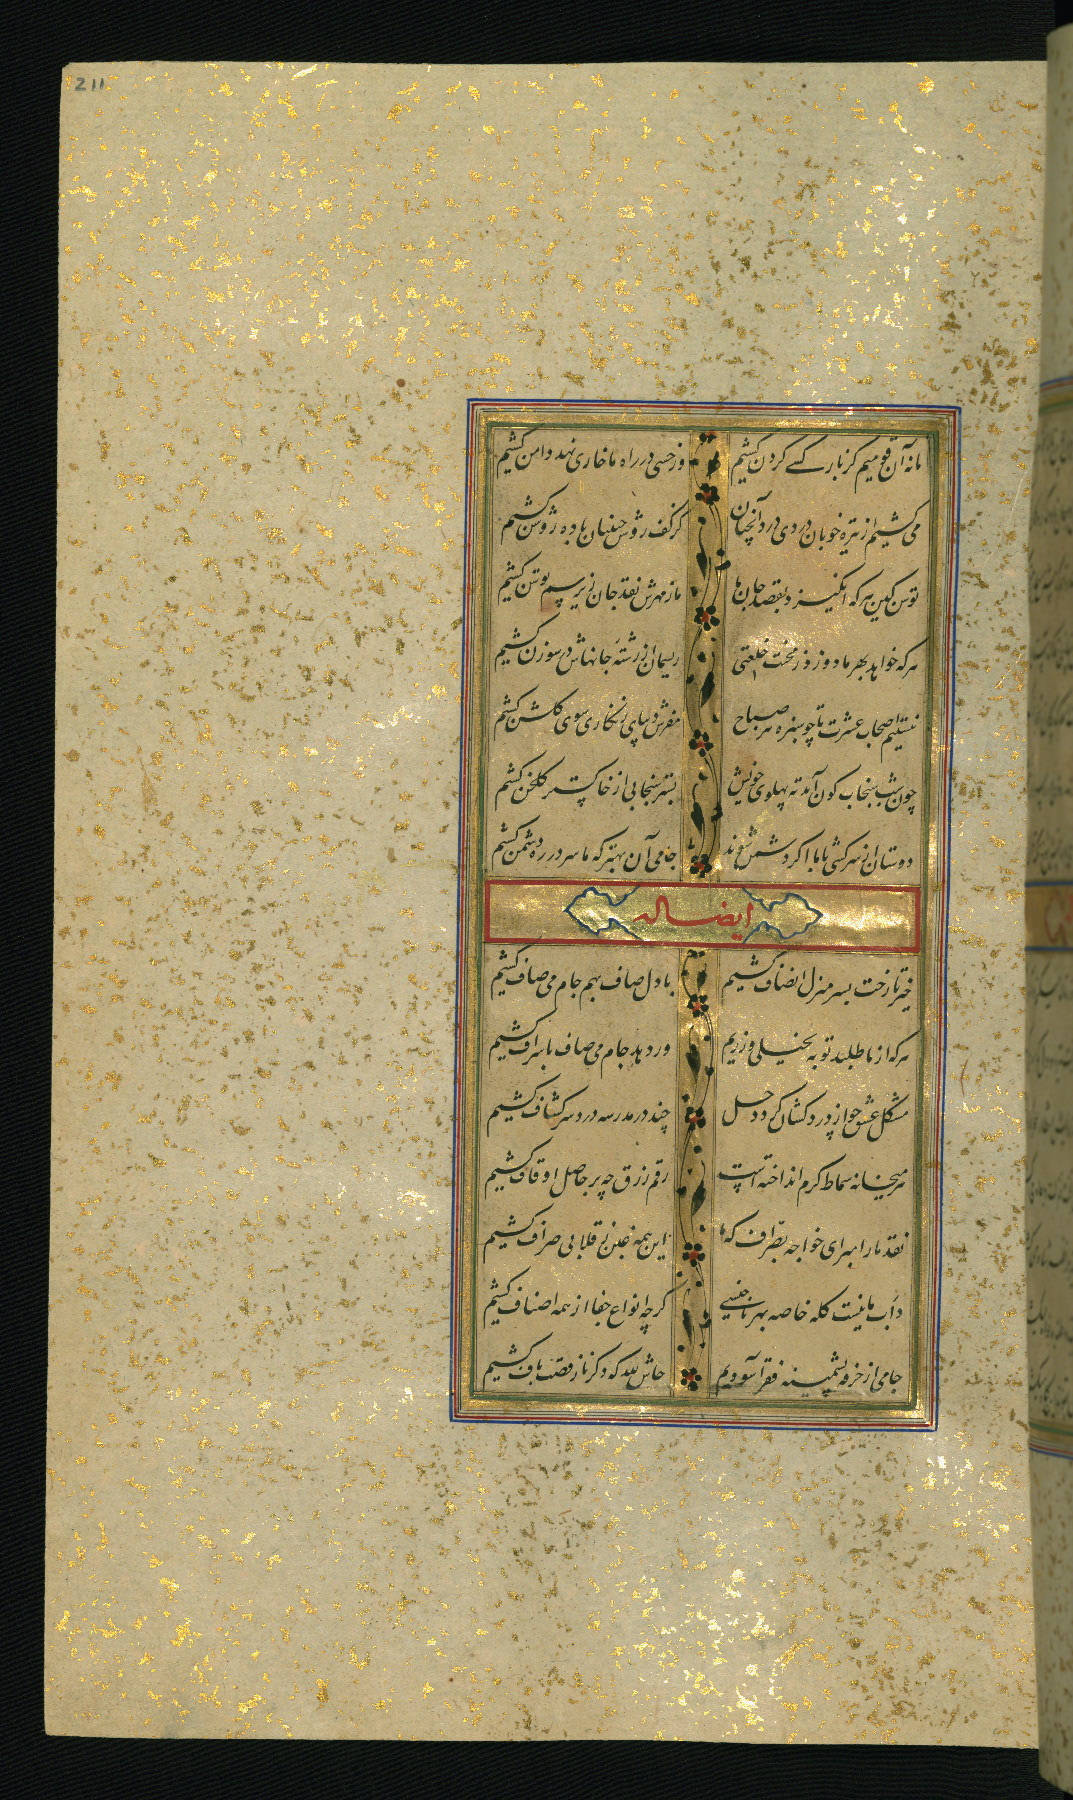 211
ما نه آن قومیم کز بار کسی گردن کشیم
ور خسی در راه ما خاری نهد دامن کشیم
می کشیم از تیره خویان دردی درد آنچنان
کز کف روشن جبینان باده روشن کشیم
توسن کین هر که انگیزد بقصد جان ما
ما ز مهرش نقد جان زیر سم توسن کشیم
هر که خواهد بهر ما دوزد ز محنت خلعتی
ریسمان از رشته جانهاش در سوزن کشیم
نیستیم اصحاب عشرت تا چو سبزه هر صباح
مفرش دیبای زنگاری سوی گلشن کشیم
چون شب سنجاب گون آمد ته پهلوی خویش
بستر سنجابی از خاکستر گلخن کشیم
دوستان از سرکشی با ما اگر دشمن شوند
جامی آن بهتر که ما سر در ره دشمن کشیم
ایضا له
خیز تا رخت بسر منزل انصاف کشیم
با دل صاف بهم جام می صاف کشیم
هر که از ما طلبد توبه بخیلی ورزیم
ور دهد جام می صاف باسراف کشیم
مشکل عشق چو از درد کشان گردد حل
چند در مدرسه درد سر کشاف کشیم
میر میخانه سماط کرم انداخته است
رقم رزق چه بر حاصل اوقاف کشیم
نقد ما را ببر ای خواجه بصراف که ما
این همه غبن ز قلابی صراف کشیم
دأب ما نیست گله خاصه بهر ناجنسی
گرچه انواع جفا از همه اصناف کشیم
جامی از خرقه پشمینه فقر آسودیم
حاش لله که دگر ناز قصب باف کشیم